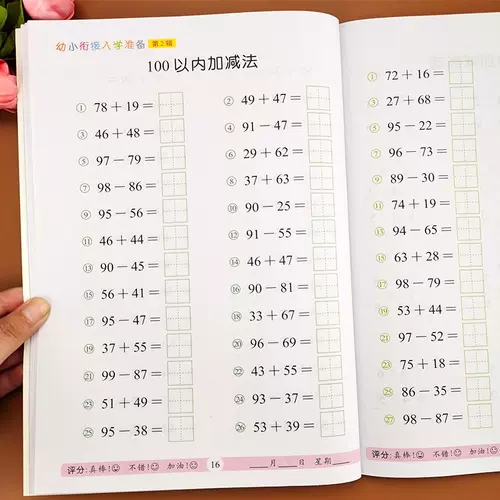 幼小衔接入学准备 第2辑
100以内加减法
① 78+19= ② 49+47=
③ 46+48= ④ 91-47=
⑤ 97-79= ⑥ 29+62=
⑦ 98-86= ⑧ 37+63=
⑨ 95-56= ⑩ 90-25=
⑪ 46+44= ⑫ 91-55=
⑬ 90-45= ⑭ 46+47=
⑮ 56+41= ⑯ 90-81=
⑰ 95-47= ⑱ 33+67=
⑲ 37+55= ⑳ 96-69=
㉑ 99-87= ㉒ 43+55=
㉓ 51+49= ㉔ 93-37=
㉕ 95-38= ㉖ 53+39=
评分:真棒! 不错! 加油! 16 ____月____日 星期____
① 72+16=
③ 27+68=
⑤ 95-22=
⑦ 96-73=
⑨ 89-30=
⑪ 74+19=
⑬ 94-65=
⑮ 63+28=
⑰ 98-79=
⑲ 53+44=
㉑ 97-51=
㉓ 75+18=
㉕ 86-35=
㉗ 98-87=
评分:真棒! 不错! 加油!